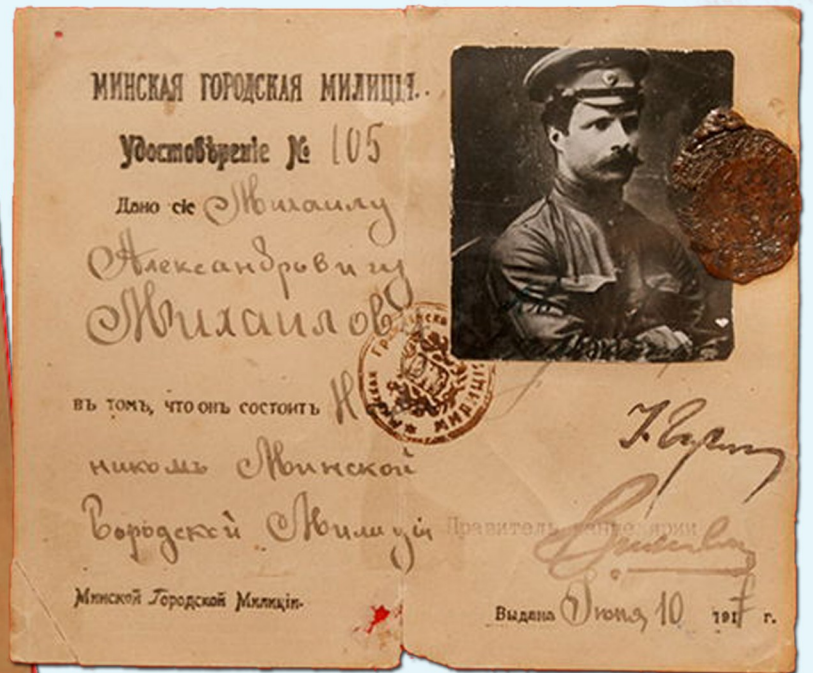 МИНСКАЯ ГОРОДСКАЯ МИЛИЦІЯ.
Удостовѣреніе № 105
Дано сіе Михаилу
Александровичу
Михайлову
въ томъ, что онъ состоитъ
никомъ Минской
Городской Милиціи
Минской Городской Милиціи.
МИЛИЦІЯ
Правитель
Выдана Іюня 10 1917 г.